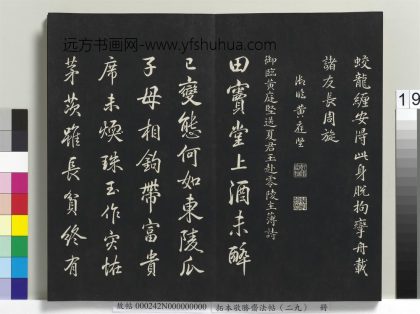 远方书画网-www.yfshuhua.com
蛟龍纏安得此身脫拘攣舟載
諸友長周旋
臨黃庭堅
御臨黃庭堅送夏君玉赴零陵主簿詩
田竇堂上酒未醉
已變態何如東陵瓜
子母相鉤帶富貴
席未煖珠玉作灾怪
茅茨雖長貧終有
故帖 000242N000000000 拓本敬勝齋法帖（二九） 冊
19